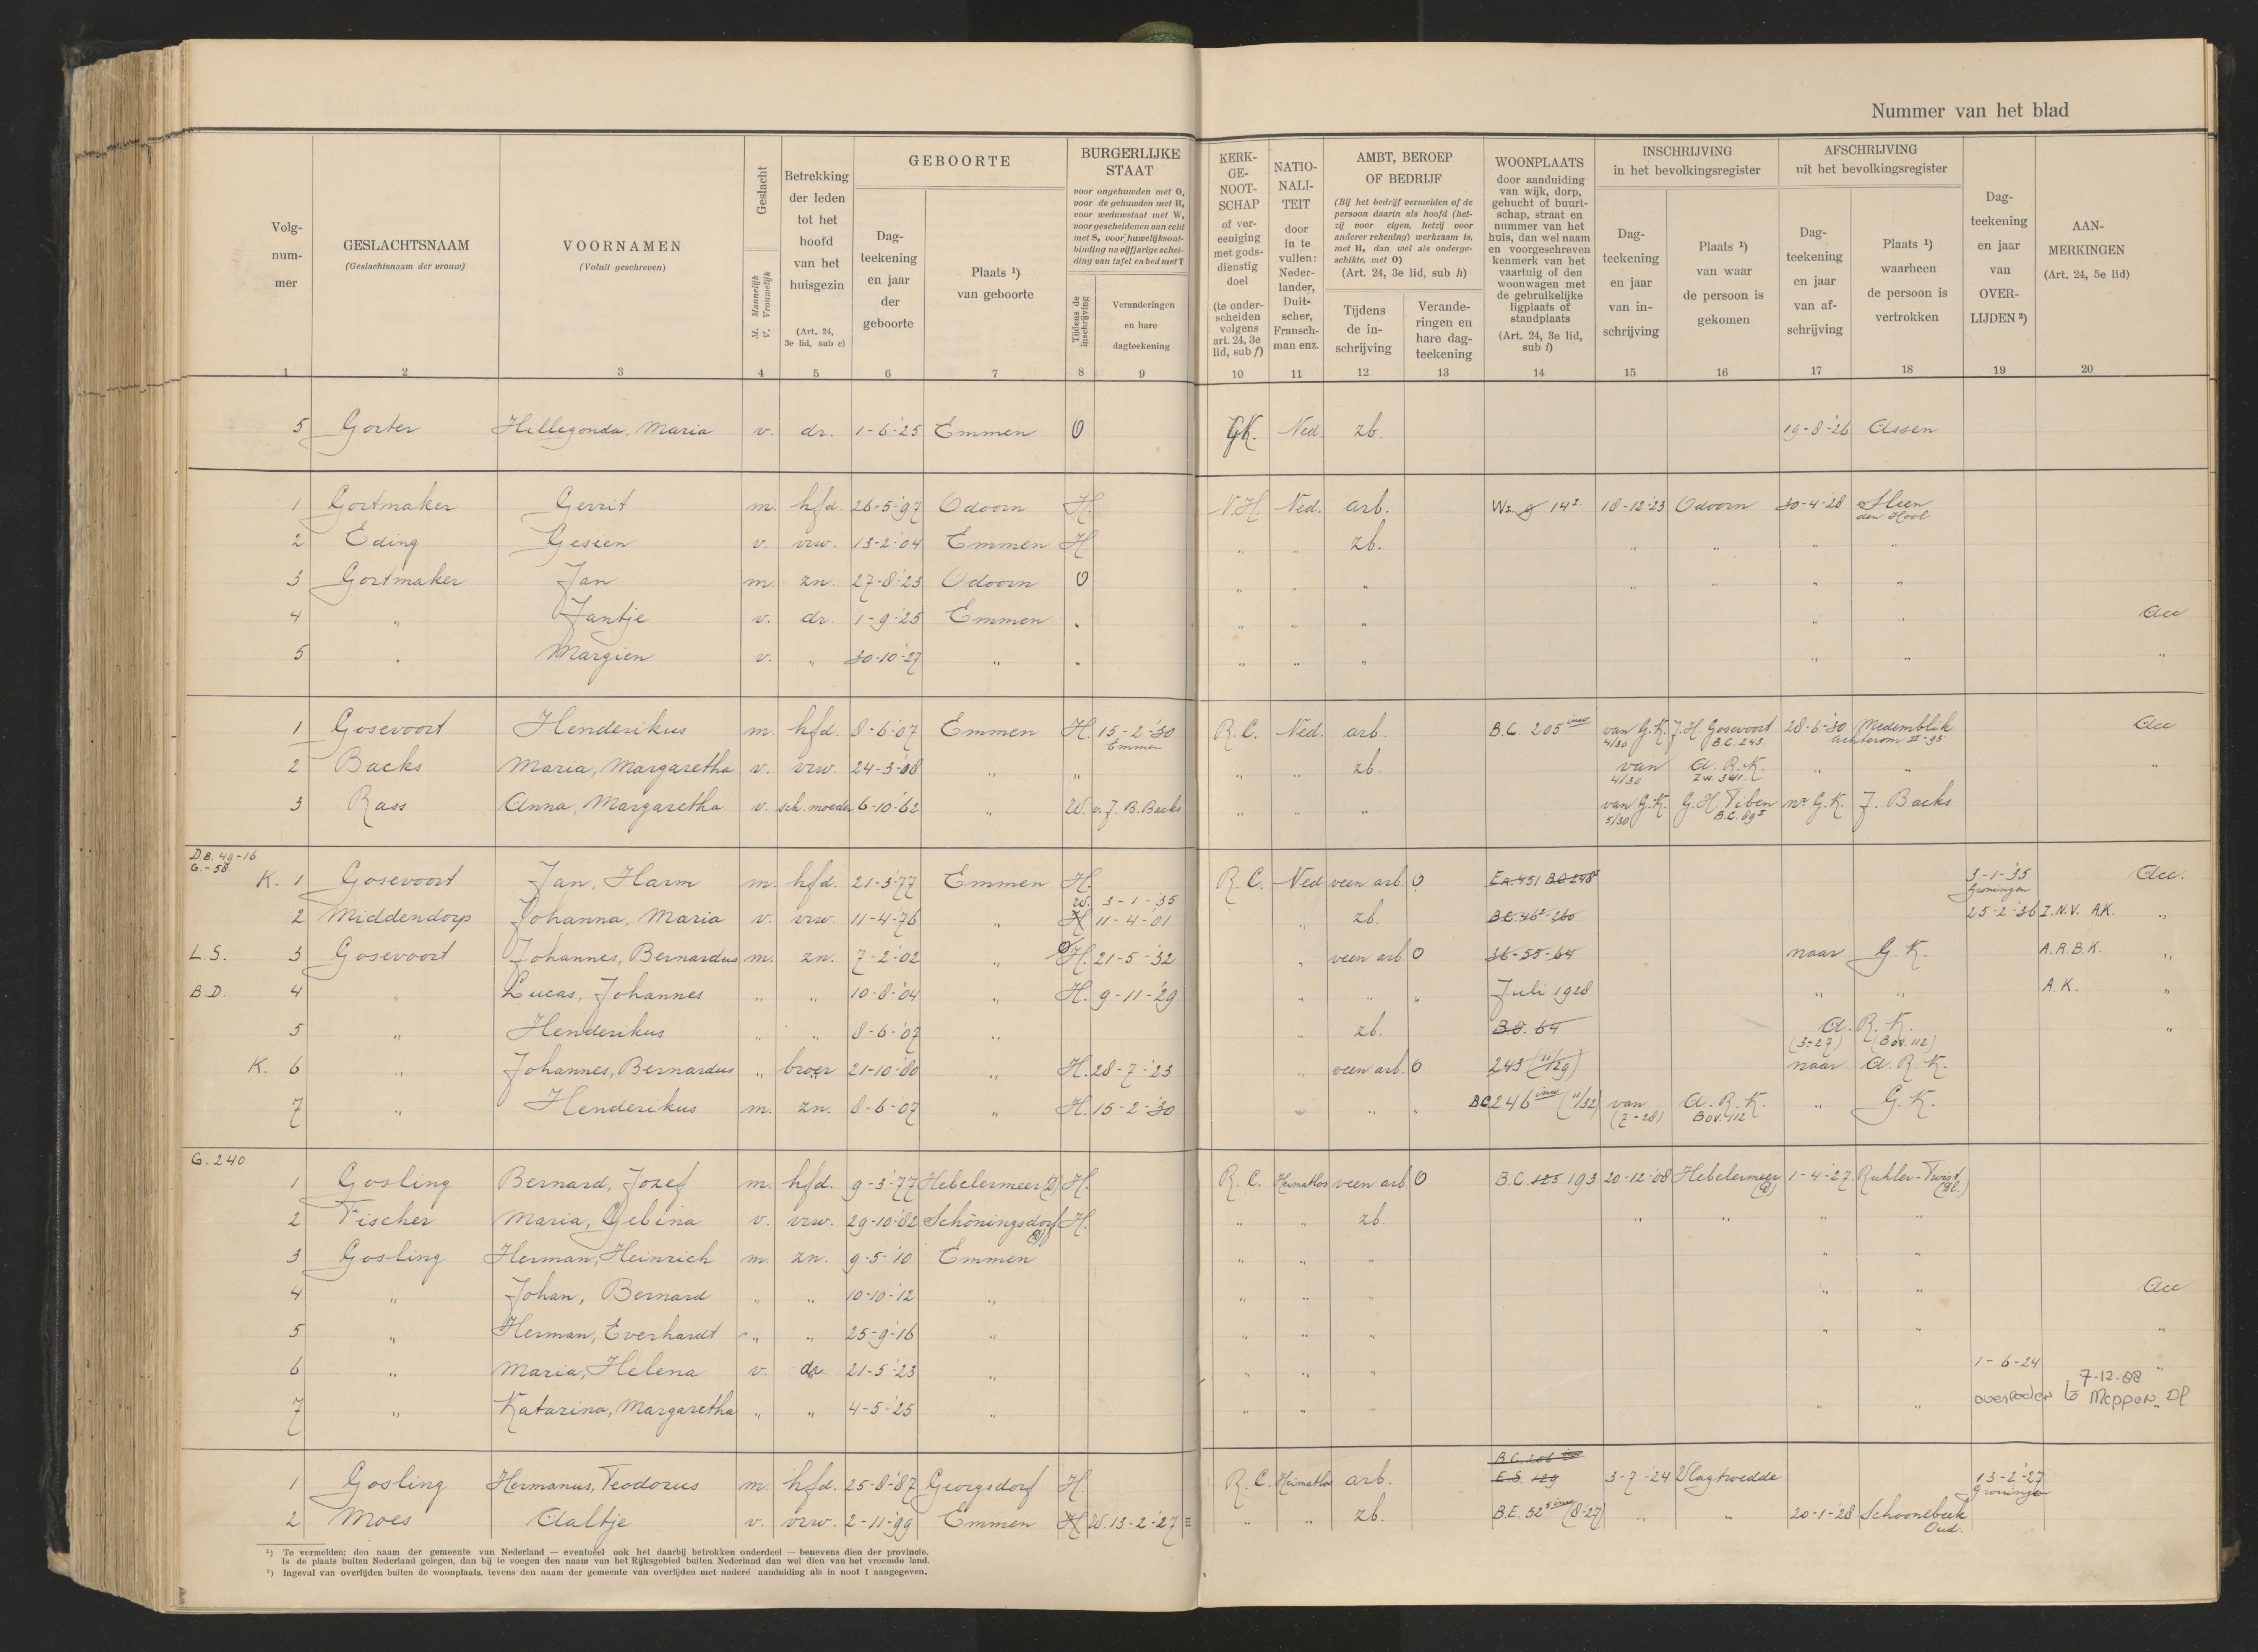 Nummer van het blad
Volg-
num-
mer
GESLACHTSNAAM
(Geslachtsnaam der vrouw)
VOORNAMEN
(Voluit geschreven)
Geslacht
M. Mannelijk
V. Vrouwelijk
Betrekking
der leden
tot het
hoofd
van het
huisgezin
(Art. 24,
3e lid, sub c)
GEBOORTE
Dag-
teekening
en jaar
der
geboorte
Plaats ¹)
van geboorte
BURGERLIJKE
STAAT
voor ongehuwden met O,
voor de gehuwden met H,
voor weduwstaat met W,
voor gescheidenen van echt
met S, voor huwelijksont-
binding na vijfjarige schei-
ding van tafel en bed met T
Tijdens de
inschrijving
Veranderingen
en hare
dagteekening
KERK-
GE-
NOOT-
SCHAP
of ver-
eeniging
met gods-
dienstig
doel
(te onder-
scheiden
volgens
art. 24, 3e
lid, sub f)
NATIO-
NALI-
TEIT
door
in te
vullen:
Neder-
lander,
Duit-
scher,
Fransch-
man enz.
AMBT, BEROEP
OF BEDRIJF
(Bij het bedrijf vermelden of de
persoon daarin als hoofd (het-
zij voor eigen, hetzij voor
anderer rekening) werkzaam is,
met H, dan wel als onderge-
schikte, met O)
(Art. 24, 3e lid, sub h)
Tijdens
de in-
schrijving
Verande-
ringen en
hare dag-
teekening
WOONPLAATS
door aanduiding
van wijk, dorp,
gehucht of buurt-
schap, straat en
nummer van het
huis, dan wel naam
en voorgeschreven
kenmerk van het
vaartuig of den
woonwagen met
de gebruikelijke
ligplaats of
standplaats
(Art. 24, 3e lid,
sub i)
INSCHRIJVING
in het bevolkingsregister
Dag-
teekening
en jaar
van in-
schrijving
Plaats ¹)
van waar
de persoon is
gekomen
AFSCHRIJVING
uit het bevolkingsregister
Dag-
teekening
en jaar
van af-
schrijving
Plaats ¹)
waarheen
de persoon is
vertrokken
Dag-
teekening
en jaar
van
OVER-
LIJDEN ²)
AAN-
MERKINGEN
(Art. 24, 5e lid)
1 2 3 4 5 6 7 8 9 10 11 12 13 14 15 16 17 18 19 20
5 Gorter Hillegonda, Maria v. dr. 1-6-'25 Emmen O GK. Ned. zb. 19-8-'26 Assen
1 Gortmaker Gerrit m. hfd. 26-5-'97 Odoorn H. N.H. Ned. arb. 18-12-'23 Odoorn 30-4-'28 Sleen
den Hool
2 Eding Geseen v. vrw. 13-2-'04 Emmen H „ „ zb. „ „ „ „
3 Gortmaker Jan m. zn. 27-8-'23 Odoorn O „ „ „ „ „ „ „
4 „ Jantje v. dr. 1-9-'25 Emmen „ „ „ „ „ „ Acc
5 „ Margien v. „ 30-10-'27 „ „ „ „ „ „ „ „
1 Gosevoort Henderikus m. hfd. 8-6-'07 Emmen H. 15-2-'30 R.C. Ned. arb. B.C. 205 inw van G.K. J.H. Gosevoort 28-6-'30 Medemblik Acc
Emmen 4/30 B.C. 243. achterom II-93
2 Backs Maria, Margaretha v. vrw. 24-3-'08 „ „ „ „ zb. van A.R.K. „ „ „
4/30 Zw. 341.
3 Rass Anna, Margaretha v. sch. moeder 6-10-'62 „ W. v. J.B. Backs „ „ „ van G.K. G.H. Tiben nr G.K. J. Backs
5/30 B.C. 89 I
D.B. 49-16
G.-58.
K. 1 Gosevoort Jan, Harm m. hfd. 21-3-'77 Emmen H. R.C. Ned veen arb. O E.A. 451 B.C. 248 3-1-'35 Acc.
Groningen
W. 3-1-'35
2 Middendorp Johanna, Maria v. vrw. 11-4-'76 „ H 11-4-'01 „ zb. B.C. 46²-260 25-2-'36 I.N.V. A.K. „
L.S. 3 Gosevoort Johannes, Bernardus m. zn. 7-2-'02 „ O H. 21-5-'32 „ veen arb. O 36-55-64 naar G.K. A.R.B.K. „
B.D. 4 „ Lucas, Johannes „ „ 10-8-'04 H. 9-11-'29 „ „ „ Juli 1928 „ „ A.K. „
5 „ Henderikus „ „ 8-6-'07 „ „ zb. B.C. 64 A.R.K. „
(3-27) (Bov. 112)
K. 6 „ Johannes, Bernardus „ broer 21-10-'80 „ H. 28-7-'23 „ veen arb. O 243 (11/29) naar A.R.K.
7 „ Henderikus m. zn. 8-6-'07 „ H. 15-2-'30 „ „ „ B.C. 246 inw (11/32) van A.R.K. „ G.K.
(7-28) Bov. 112
G. 240
1 Gosling Bernard, Jozef m. hfd. 9-3-'77 Hebelermeer (D) H. R.C. Heimatlos veen arb O B.C. 125 193 20-12-'08 Hebelermeer 1-4-'27 Ruhler-Twist
2 Fischer Maria, Gebina v. vrw. 29-10-'82 Schöningsdorf H. „ „ zb. „ „ „ „
3 Gosling Herman, Heinrich m. zn. 9-5-'10 Emmen „ „ „ „ „
4 „ Johan, Bernard „ „ 10-10-'12 „ „ „ „ „ „ Acc
5 „ Herman, Everhardt „ „ 25-9-'16 „ „ „ „ „ „
6 „ Maria, Helena v. dr. 21-5-'23 „ „ „ „ 1-6-24 „
7-12-88
7 „ Katarina, Margaretha „ „ 4-5-'25 „ „ „ „ „ „ overleden te Meppen Dl
B.C. 206 inw
1 Gosling Hermanus, Teodorus m. hfd. 25-8-'87 Georgsdorf H R.C. Heimatlos arb. E.S. 129 3-7-'24 Vlagtwedde 13-2-'27
Groningen
2 Moes Aaltje v. vrw. 2-11-'99 Emmen H W. 13-2-'27 „ „ zb. B.E. 52 5 inw (8-27) „ „ 20-1-'28 Schoonebeek
Oud.
¹) Te vermelden: den naam der gemeente van Nederland — eventueel ook het daarbij betrokken onderdeel — benevens dien der provincie.
Is de plaats buiten Nederland gelegen, dan bij te voegen den naam van het Rijksgebied buiten Nederland dan wel dien van het vreemde land.
²) Ingeval van overlijden buiten de woonplaats, tevens den naam der gemeente van overlijden met nadere aanduiding als in noot 1 aangegeven.